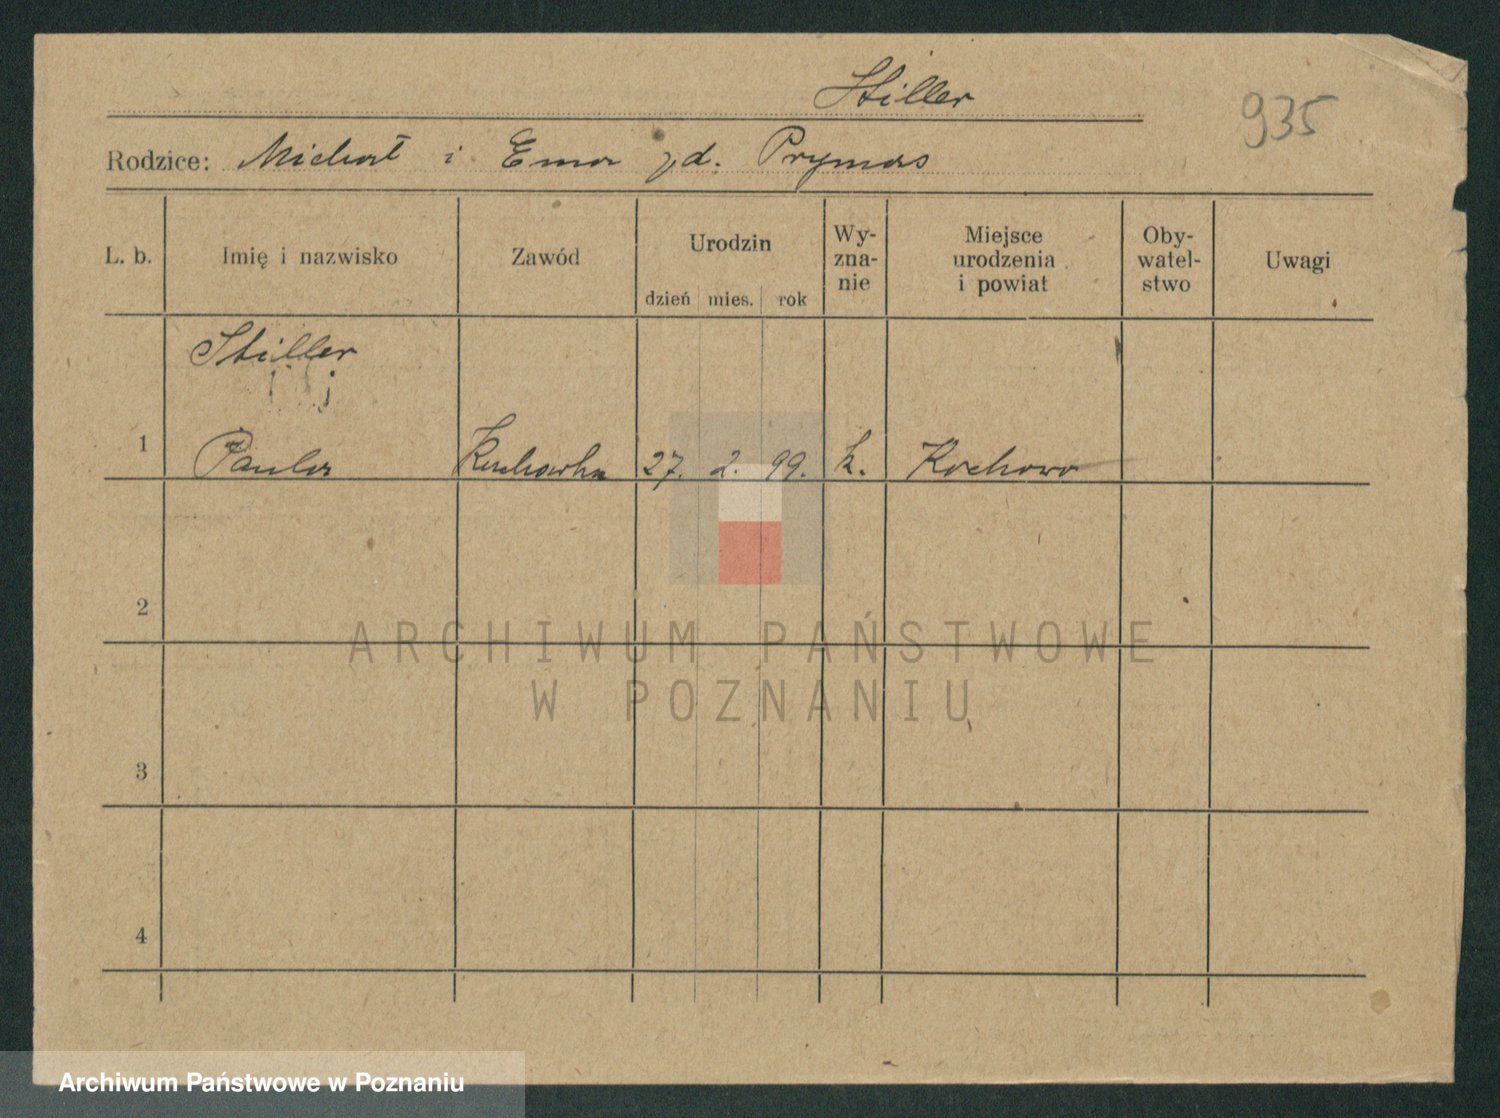 Stiller
935
Rodzice: Michał i Ema zd. Prymas
L. b.
Imię i nazwisko
Zawód
Urodzin
dzień mies. rok
Wy-
zna-
nie
Miejsce
urodzenia
i powiat
Oby-
watel-
stwo
Uwagi
Stiller
1 Paula Kucharka 27. 2. 99. k. Kochowo
2
3
4
ARCHIWUM PAŃSTWOWE
W POZNANIU
Archiwum Państwowe w Poznaniu